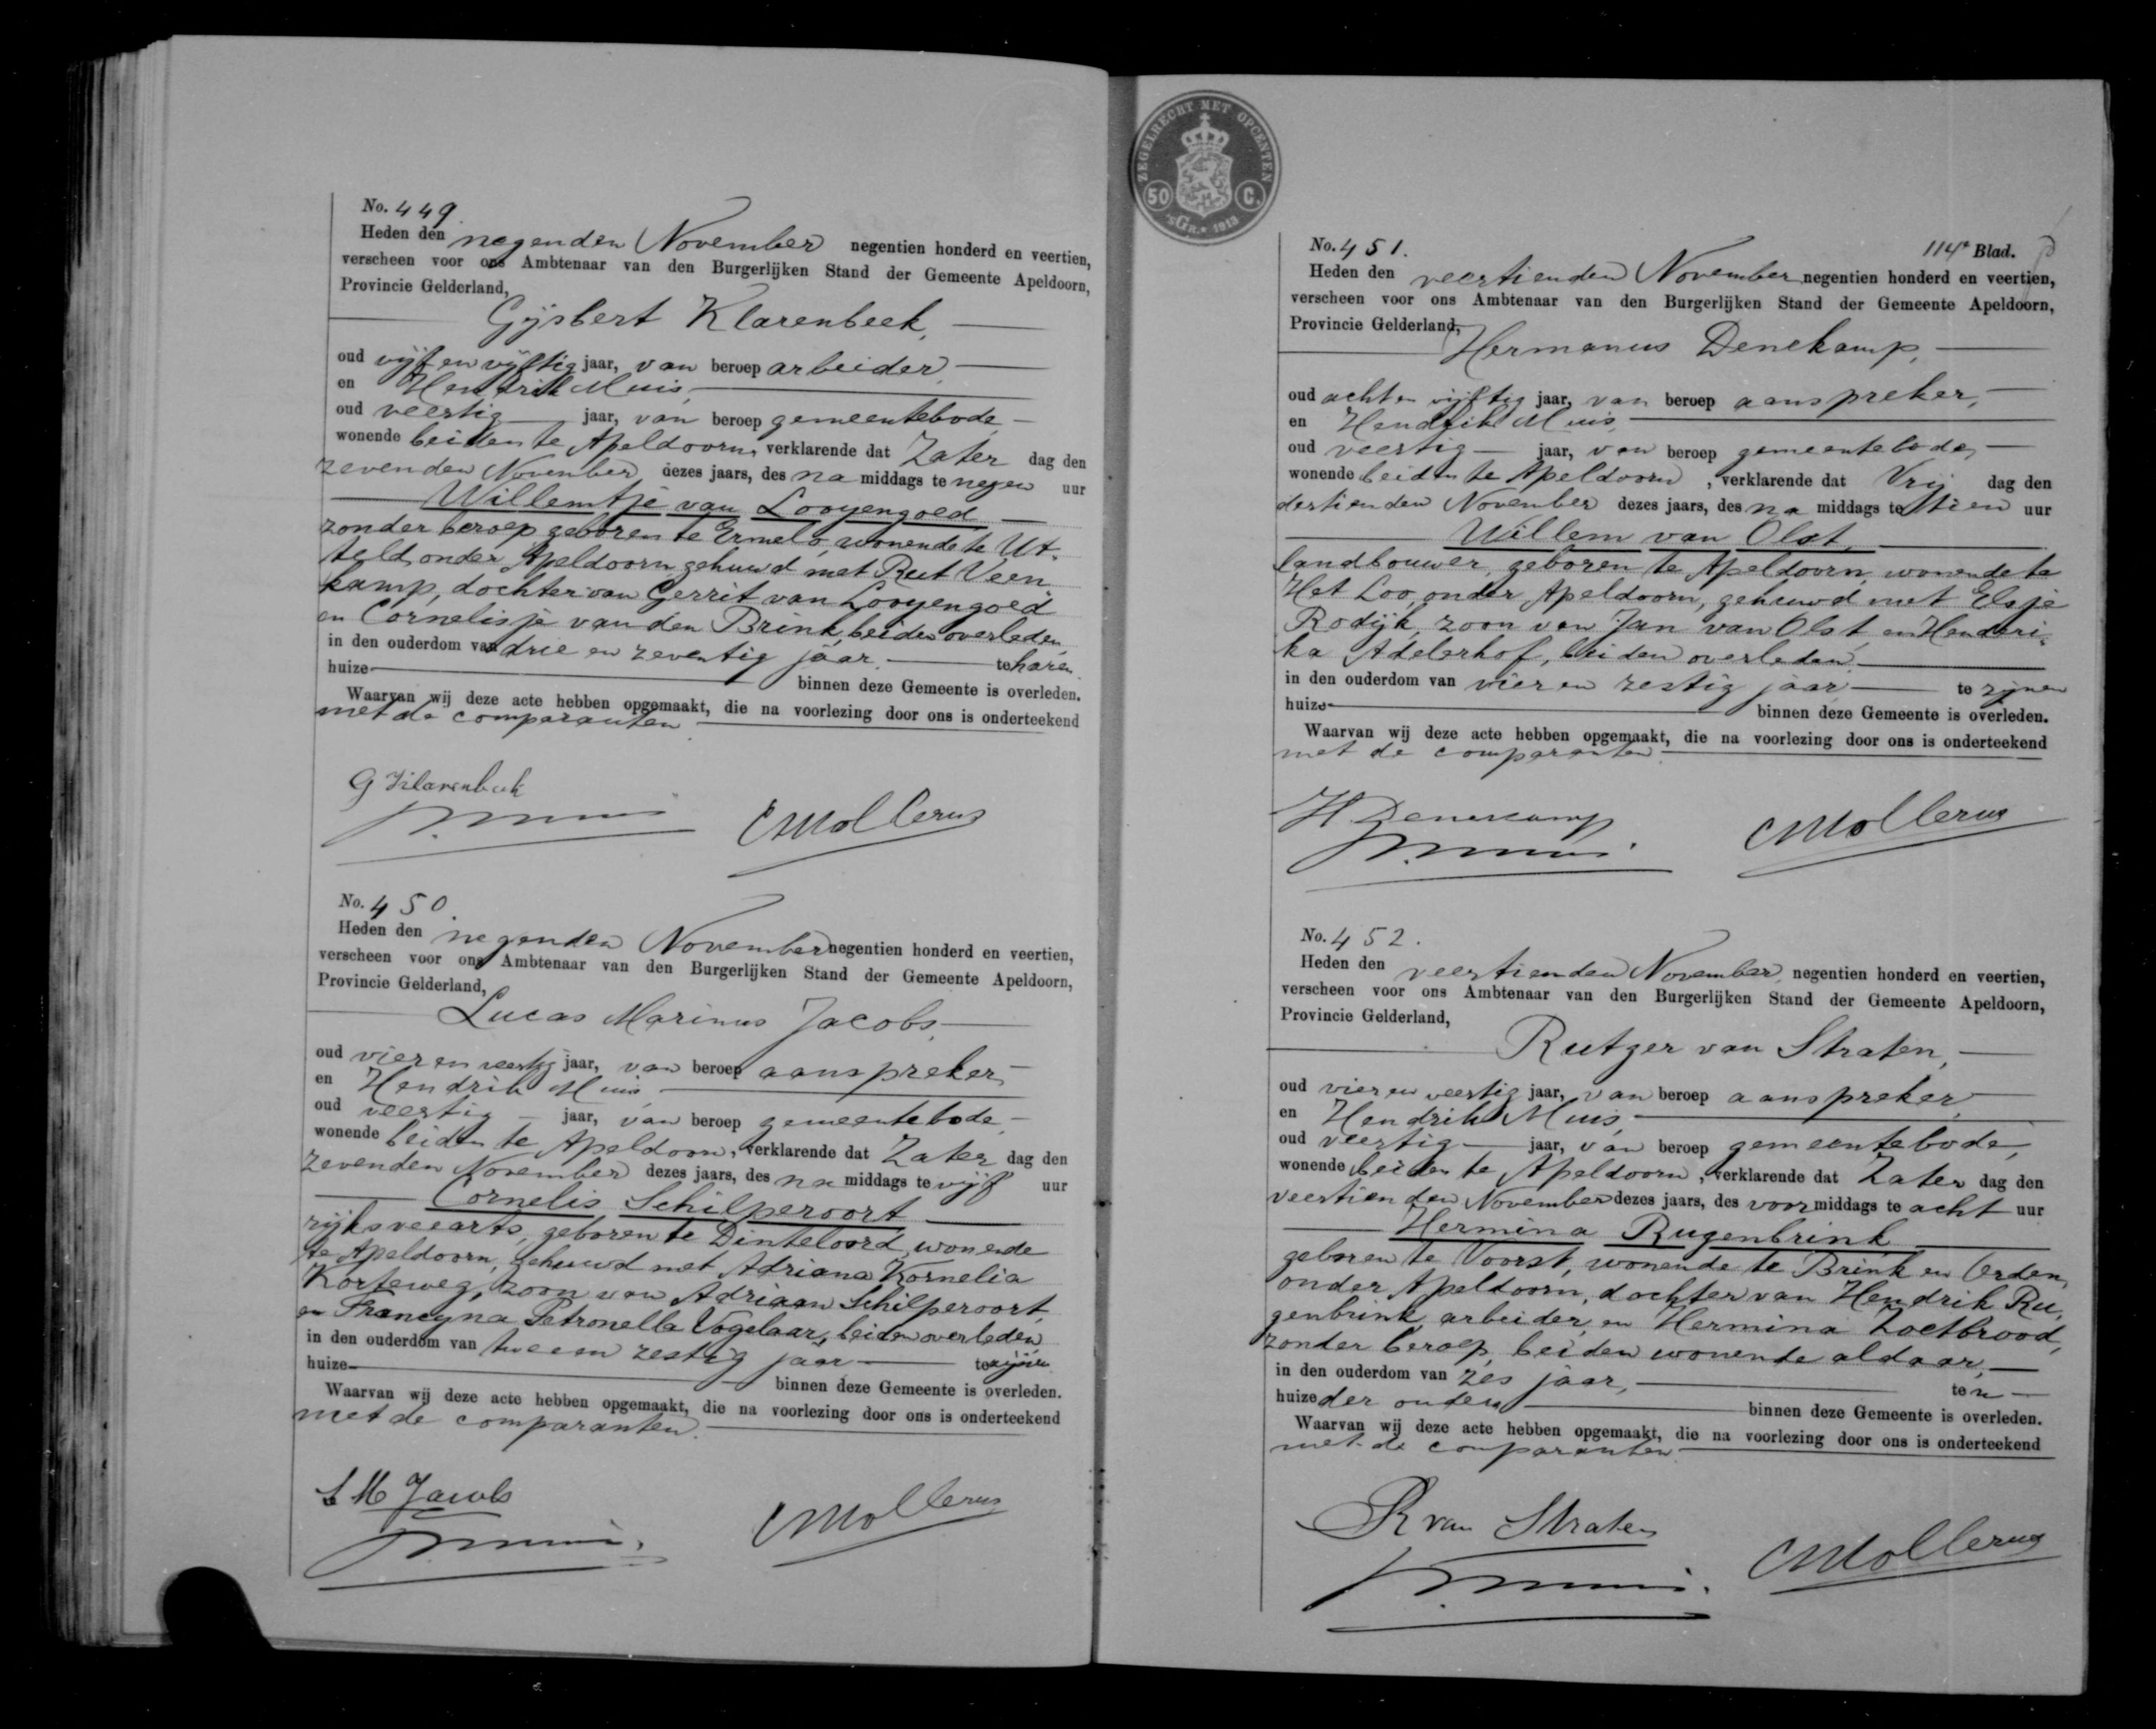 No. 449.
Heden den negenden November negentien honderd en veertien,
verscheen voor ons Ambtenaar van den Burgerlijken Stand der Gemeente Apeldoorn,
Provincie Gelderland,
Gijsbert Klarenbeek,
oud vijf en vijftig jaar, van beroep arbeider,
en Hendrik Muis,
oud veertig jaar, van beroep gemeentebode,
wonende beiden te Apeldoorn, verklarende dat Zater dag den
zevenden November dezes jaars, des na middags te negen uur
Willemtje van Looyengoed
zonder beroep geboren te Ermelo, wonende te Ut-
teld onder Apeldoorn, gehuwd met Rut Veen-
kamp, dochter van Gerrit van Looyengoed
en Cornelisje van den Brink, beiden overleden,
in den ouderdom van drie en zeventig jaar. te haren
huize binnen deze Gemeente is overleden.
Waarvan wij deze acte hebben opgemaakt, die na voorlezing door ons is onderteekend
met de comparanten.
G Klarenbeek
CMollerus
No. 450.
Heden den negenden November negentien honderd en veertien,
verscheen voor ons Ambtenaar van den Burgerlijken Stand der Gemeente Apeldoorn,
Provincie Gelderland,
Lucas Marinus Jacobs,
oud vier en veertig jaar, van beroep aanspreker,
en Hendrik Muis,
oud veertig jaar, van beroep gemeentebode,
wonende beiden te Apeldoorn, verklarende dat Zater dag den
zevenden November dezes jaars, des na middags te vijf uur
Cornelis Schilperoort
rijksveearts, geboren te Dinteloord, wonende
te Apeldoorn, gehuwd met Adriana Kornelia
Korteweg, zoon van Adriaan Schilperoort,
en Francyna Petronella Vogelaar, beiden overleden,
in den ouderdom van twee en zestig jaar te zijnen
huize binnen deze Gemeente is overleden.
Waarvan wij deze acte hebben opgemaakt, die na voorlezing door ons is onderteekend
met de comparanten.
L M Jacobs
CMollerus
ZEGELRECHT MET OPCENTEN
50 C.
'sGR. 1913
No. 451. 114e Blad.
Heden den veertienden November negentien honderd en veertien,
verscheen voor ons Ambtenaar van den Burgerlijken Stand der Gemeente Apeldoorn,
Provincie Gelderland,
Hermanus Denekamp,
oud acht en vijftig jaar, van beroep aanspreker,
en Hendrik Muis,
oud veertig jaar, van beroep gemeentebode,
wonende beiden te Apeldoorn, verklarende dat Vrij dag den
dertienden November dezes jaars, des na middags te tien uur
Willem van Olst,
landbouwer, geboren te Apeldoorn, wonende te
Het Loo, onder Apeldoorn, gehuwd met Elsje
Rodijk, zoon van Jan van Olst, en Henderi-
ka Adelerhof, beiden overleden.
in den ouderdom van vier en zestig jaar te zijnen
huize binnen deze Gemeente is overleden.
Waarvan wij deze acte hebben opgemaakt, die na voorlezing door ons is onderteekend
met de comparanten.
H Denekamp
CMollerus
No. 452.
Heden den veertienden November, negentien honderd en veertien,
verscheen voor ons Ambtenaar van den Burgerlijken Stand der Gemeente Apeldoorn,
Provincie Gelderland,
Rutger van Straten,
oud vier en veertig jaar, van beroep aanspreker,
en Hendrik Muis,
oud veertig jaar, van beroep gemeentebode,
wonende beiden te Apeldoorn, verklarende dat Zater dag den
veertienden November dezes jaars, des voor middags te acht uur
Hermina Rugenbrink
geboren te Voorst, wonende te Brink en Orden,
onder Apeldoorn, dochter van Hendrik Ru-
genbrink, arbeider, en Hermina Zoetbrood,
zonder beroep, beiden wonende aldaar,
in den ouderdom van zes jaar, ten
huize der ouders binnen deze Gemeente is overleden.
Waarvan wij deze acte hebben opgemaakt, die na voorlezing door ons is onderteekend
met de comparanten.
R van Straten
CMollerus